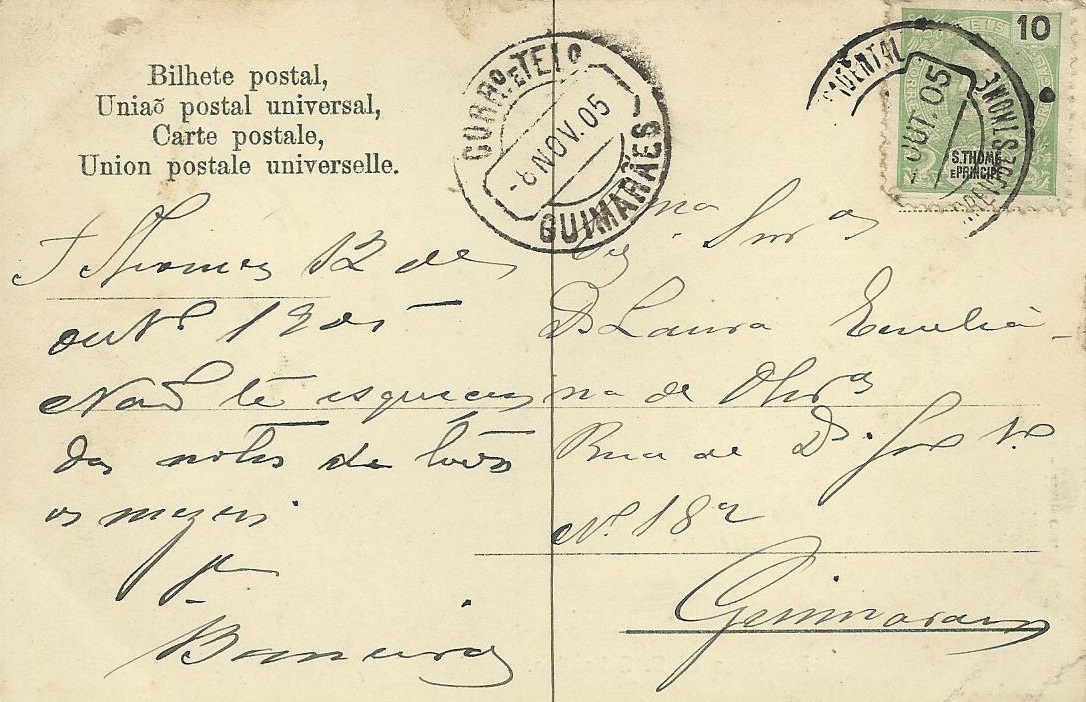 Bilhete postal,
Uniaõ postal universal,
Carte postale,
Union postale universelle.
CORRO. E TELO.
-8 NOV. 05
GUIMARÃES
10
REIS
S. THOMÉ
E PRINCIPE
OUT. 05
S. Thomé 12 de
outro 1905
Não te esqueças
das notas de todos
os mezes
Ex.ma Snr.a
D. Laura Emilia
na de Olivra
Rua de D.
N.º 182
Guimarães